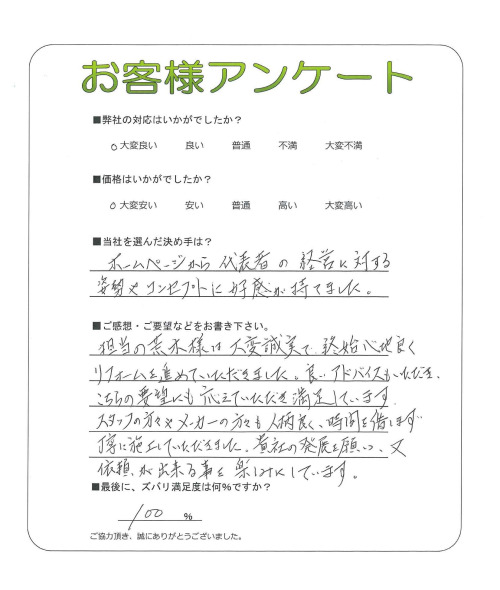 お客様アンケート
■弊社の対応はいかがでしたか？
○大変良い　良い　普通　不満　大変不満
■価格はいかがでしたか？
○大変安い　安い　普通　高い　大変高い
■当社を選んだ決め手は？
ホームページから代表者の経営に対する
姿勢やコンセプトに好感が持てました。
■ご感想・ご要望などをお書き下さい。
担当の荒木様は大変誠実で、終始心地良く
リフォームを進めていただきました。良いアドバイスもいただき、
こちらの要望にも応えていただき満足しています。
スタッフの方々やメーカーの方も人柄良く、時間を惜します
丁寧に施工していただきました。貴社の発展を願いつつ、又
依頼が出来る事を楽しみにしています。
■最後に、ズバリ満足度は何%ですか？
100 %
ご協力頂き、誠にありがとうございました。